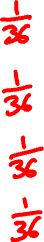 1/36
1/36
1/36
1/36